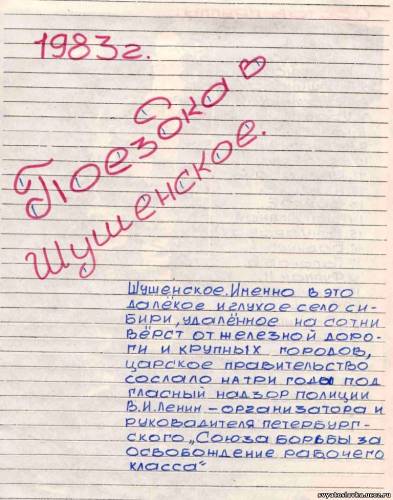 1983г.
Поездка в
Шушенское.
Шушенское. Именно в это
далёкое и глухое село си-
бири, удалённое на сотни
вёрст от железной доро-
ги и крупных городов,
царское правительство
сослало на три года под
гласный надзор полиции
В.И.Ленин.-организатора и
руководителя петербург-
ского „Союза борьбы за
освобождение рабочего
класса“
svyatoslavka.ucoz.ru